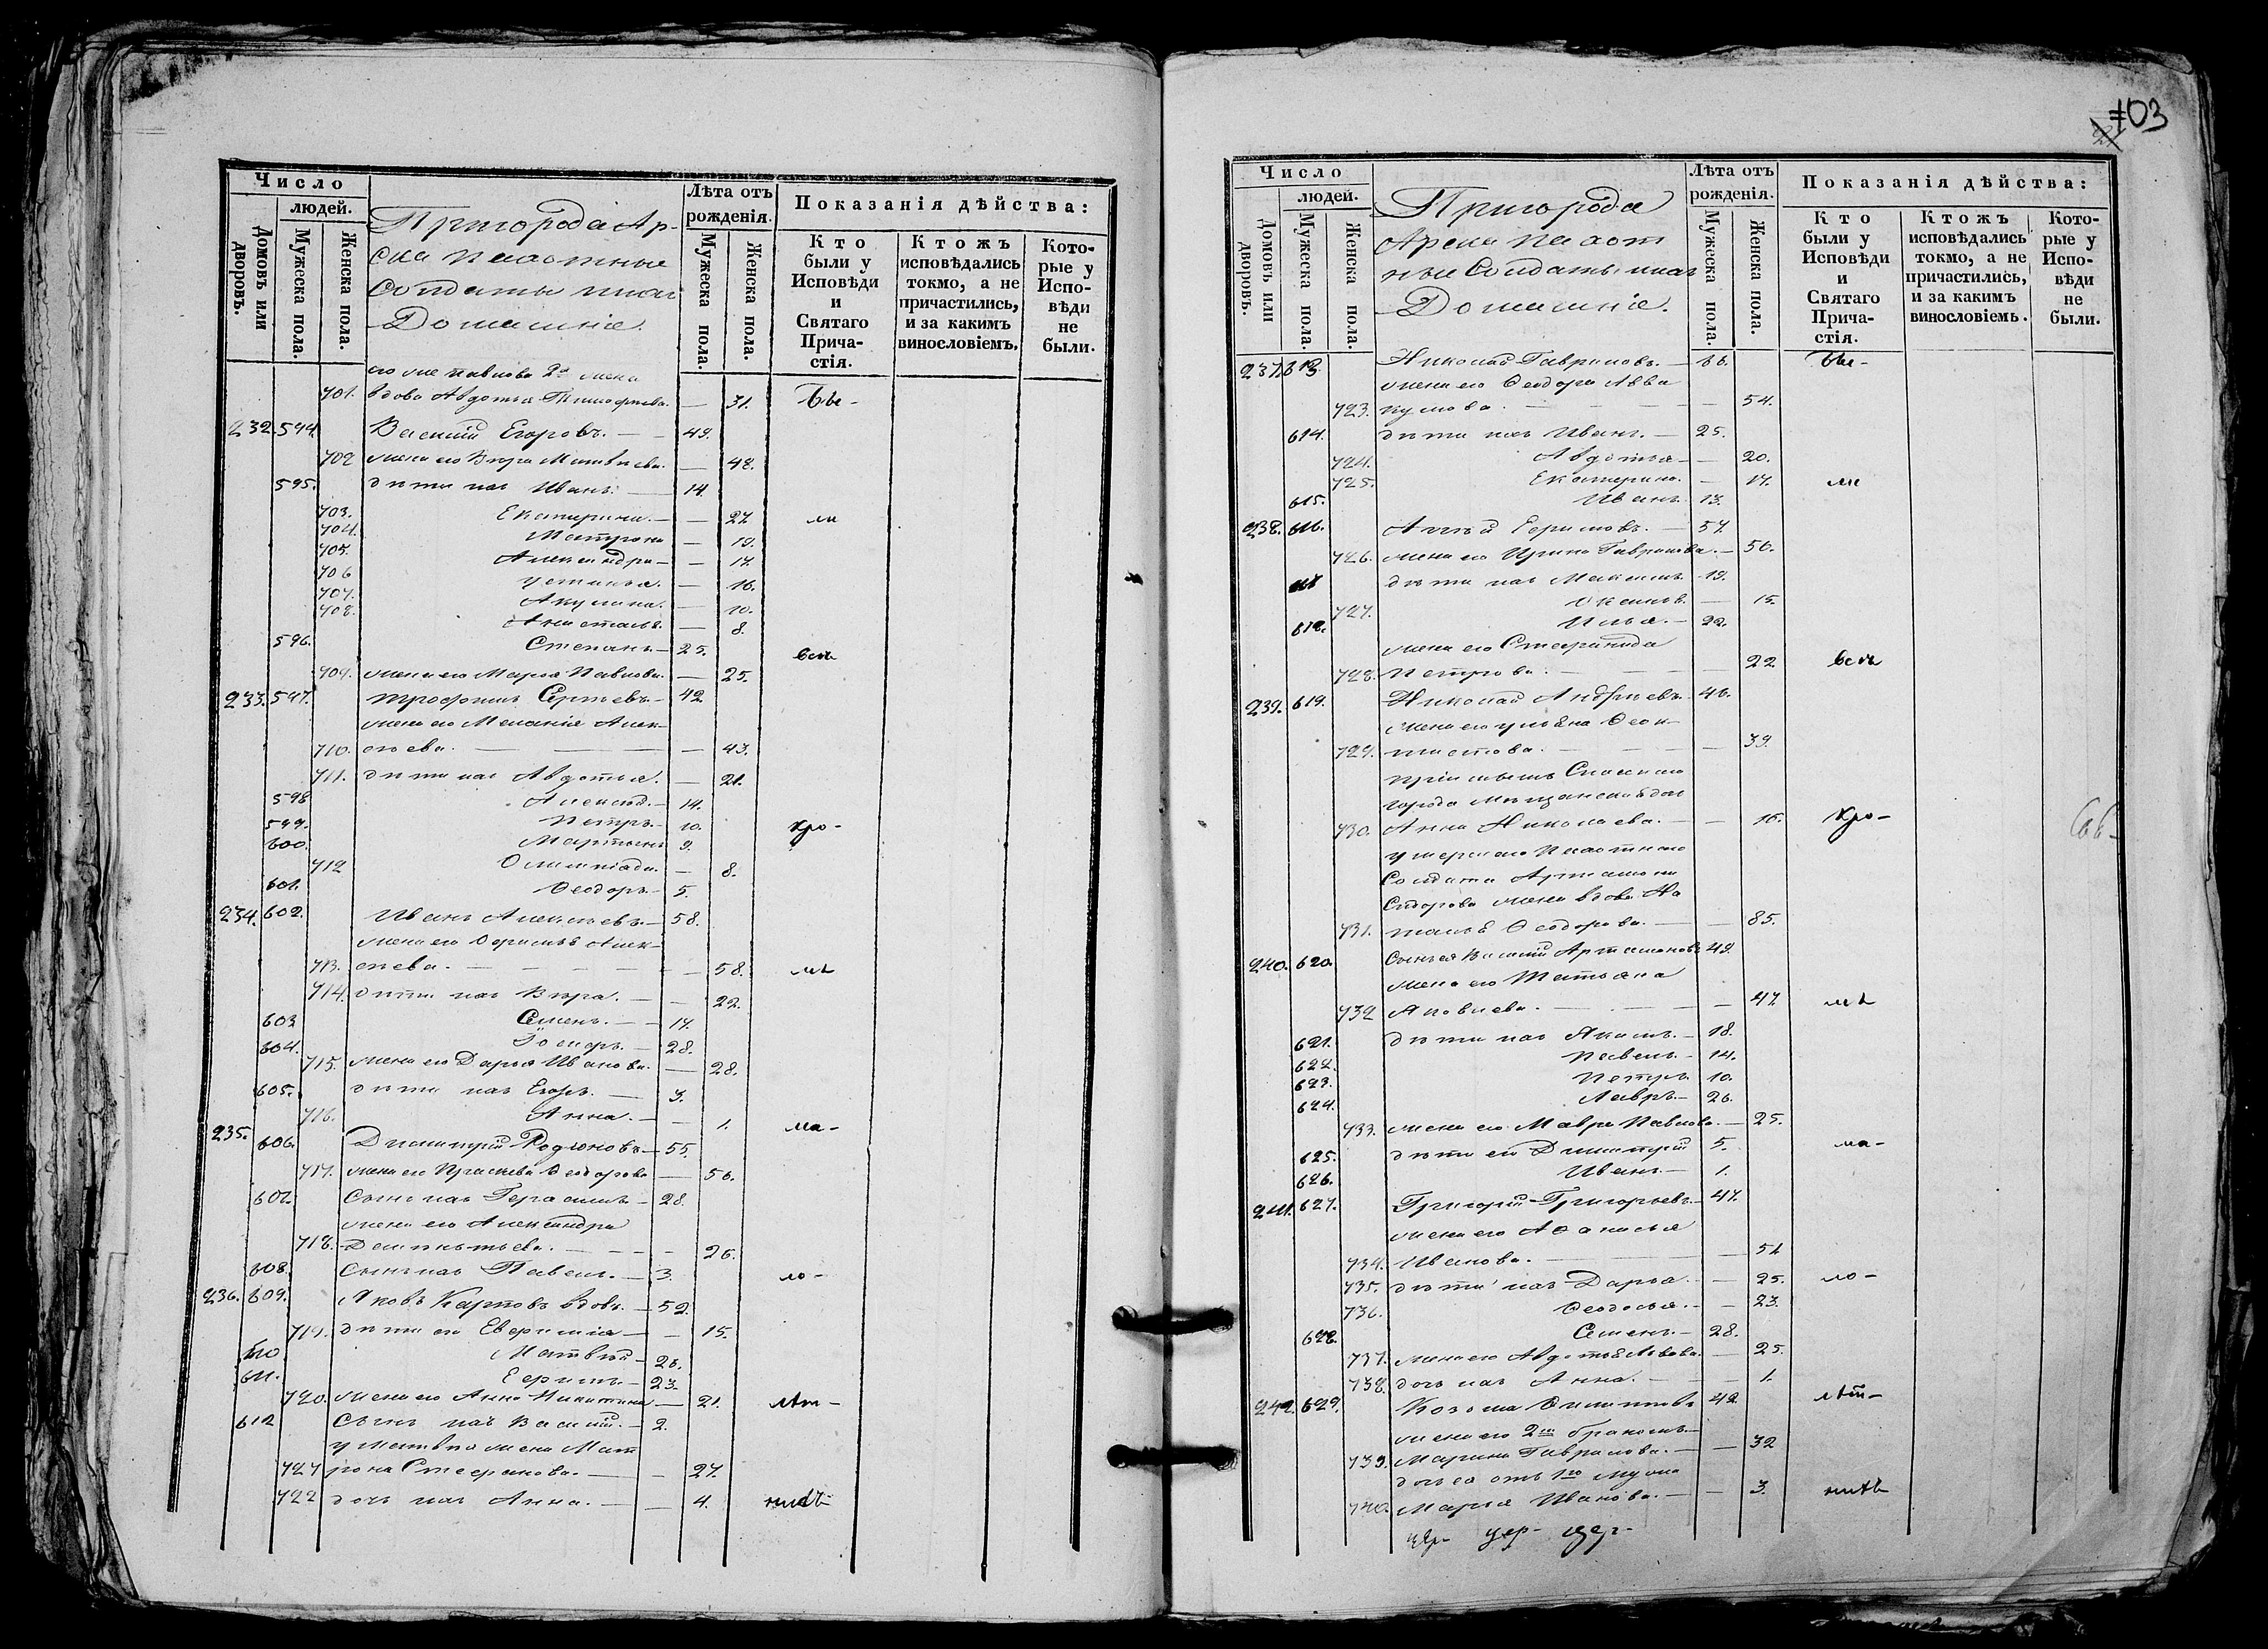 Число
людей.
Домовъ или дворовъ.
Мужеска пола.
Женска пола.
Пригорода Ар-
ска пахотные
Солдаты и ихъ
Домашніе.
Лѣта отъ рожденія.
Мужеска пола.
Женска пола.
Показанія дѣйства:
Кто были у Исповѣди и Святаго Прича-стія.
Ктожъ исповѣдались токмо, а не причастились, и за какимъ винословіемъ.
Кото-рые у Испо-вѣди не были.
701. вдова Авдотья Тимофеева. — 31. Бы-
232. 594. Василій Егоровъ. — 49.
702 жена его Вѣра Матвѣева. — 48.
595. дѣти ихъ Иванъ. — 14.
703. Екатерина. — 22 ли
704. Матрона — 19.
705. Александра — 17.
706 Устинья. — 16.
707. Акулина. — 10.
708. Анастасія. — 8.
596. Степанъ. — 25.
всѣ
709. жена его Марья Павлова. — 25.
233. 597. Трофимъ Сергѣевъ. — 42
жена его Меланія Алек-
710. сѣева. — 43.
711. дѣти ихъ Авдотья. — 21.
598 Алексѣй. — 14.
599. Петръ. — 10. кро-
600. Мартынъ 9.
712 Олимпіада. — 8.
601. Ѳеодоръ. — 5.
234. 602. Иванъ Алексѣевъ. — 58.
жена его Ефимья Алек-
713. сѣева. — 58. мѣ
714. дѣти ихъ Вѣра. — 22.
603 Семенъ. — 17.
604. 28.
715. жена его Дарья Иванова. — 28.
605. дѣти ихъ Егоръ. — 3.
716. Анна. — 1. ма-
235. 606. Димитрій Родіоновъ — 55.
717. жена его Праскева Ѳеодорова — 56.
607. Сынъ ихъ Герасимъ — 28.
жена его Александра
718. Дементьева. — 26.
608. Сынъ ихъ Павелъ. — 3. ло-
236. 609. Яковъ Карповъ вдовъ. — 52.
719. дѣти его Евфимія — 15.
610 Матвѣй — 26.
611. Ефимъ. — 23.
720. жена его Анна Никитина — 21. лѣт-
612 Сынъ ихъ Василій. — 2.
у Матвѣя жена Мат
721 рона Стефанова. — 27.
722 дочь ихъ Анна. — 4. нихъ
103
Число
людей.
Домовъ или дворовъ.
Мужеска пола.
Женска пола.
Пригорода
Арска пахот
ные Солдаты и ихъ
Домашніе.
Лѣта отъ рожденія.
Мужеска пола.
Женска пола.
Показанія дѣйства:
Кто были у Исповѣди и Святаго Прича-стія.
Ктожъ исповѣдались токмо, а не причастились, и за какимъ винословіемъ.
Кото-рые у Испо-вѣди не были.
237. 613. Николай Гавриловъ. — 66. бы-
жена его Ѳеодора Авва
723. кумова. — 54.
614. дѣти ихъ Иванъ. — 25.
724. Авдотья — 20.
725. Екатерина. — 17. ли
615. Иванъ. 13.
238. 616. Ефимовъ. — 57.
726. жена его Ирина Гаврилова. — 50.
дѣти ихъ Максимъ. 19.
727. Оксинья. — 15.
618. Илья. — 22.
жена его Стефанида
728. Петрова. — 22 всѣ
239. 619. Николай Андреевъ. 46.
жена его Ульяна Ѳеок-
729. тистова. — 39.
пріемышъ Спасскаго
города мѣщанская дочь
730. Анна Николаева. — 16. кро-
умершаго пахотнаго
Солдата Артамона
жена вдова На
731. талья Ѳеодорова. — 85.
240. 620. Сынъ ея Василій Артамоновъ 49.
жена его Татьяна
732 Яковлева. — 47 мѣ
621. дѣти ихъ Якимъ. — 18.
622. Павелъ. — 14.
623. Петръ. 10.
624. Лавръ — 26.
733. жена его Мавра Павлова. — 25.
625. дѣти его Димитрій 5. ма-
626. Иванъ. — 1.
241. 627. Григорій Григорьевъ. — 47.
жена его Аѳанасья
734. Иванова. — 51
735. дѣти ихъ Дарья. — 25. ло-
736. Ѳеодосья. — 23.
628. Семенъ. — 28.
737. жена его Авдотья Львова. — 25.
738. дочь ихъ Анна. — 1.
242. 629. Козьма 42. лѣт-
жена его 2мъ бракомъ
739. Марина Гаврилова. — 32
дочь ея отъ 1го мужа
740. Марья Иванова. — 3. нихъ